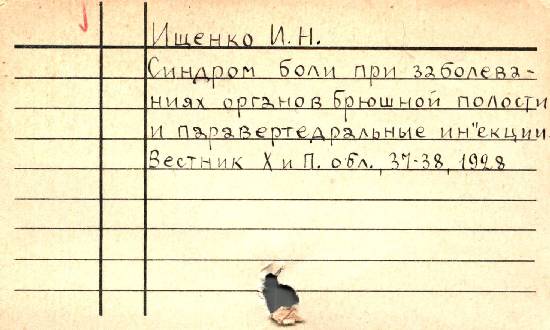 Ищенко И.Н.
Синдром боли при заболева-
ниях органов брюшной полости
и паравертедральные ин"екции.
Вестник Х и П. обл., 37-38, 1928